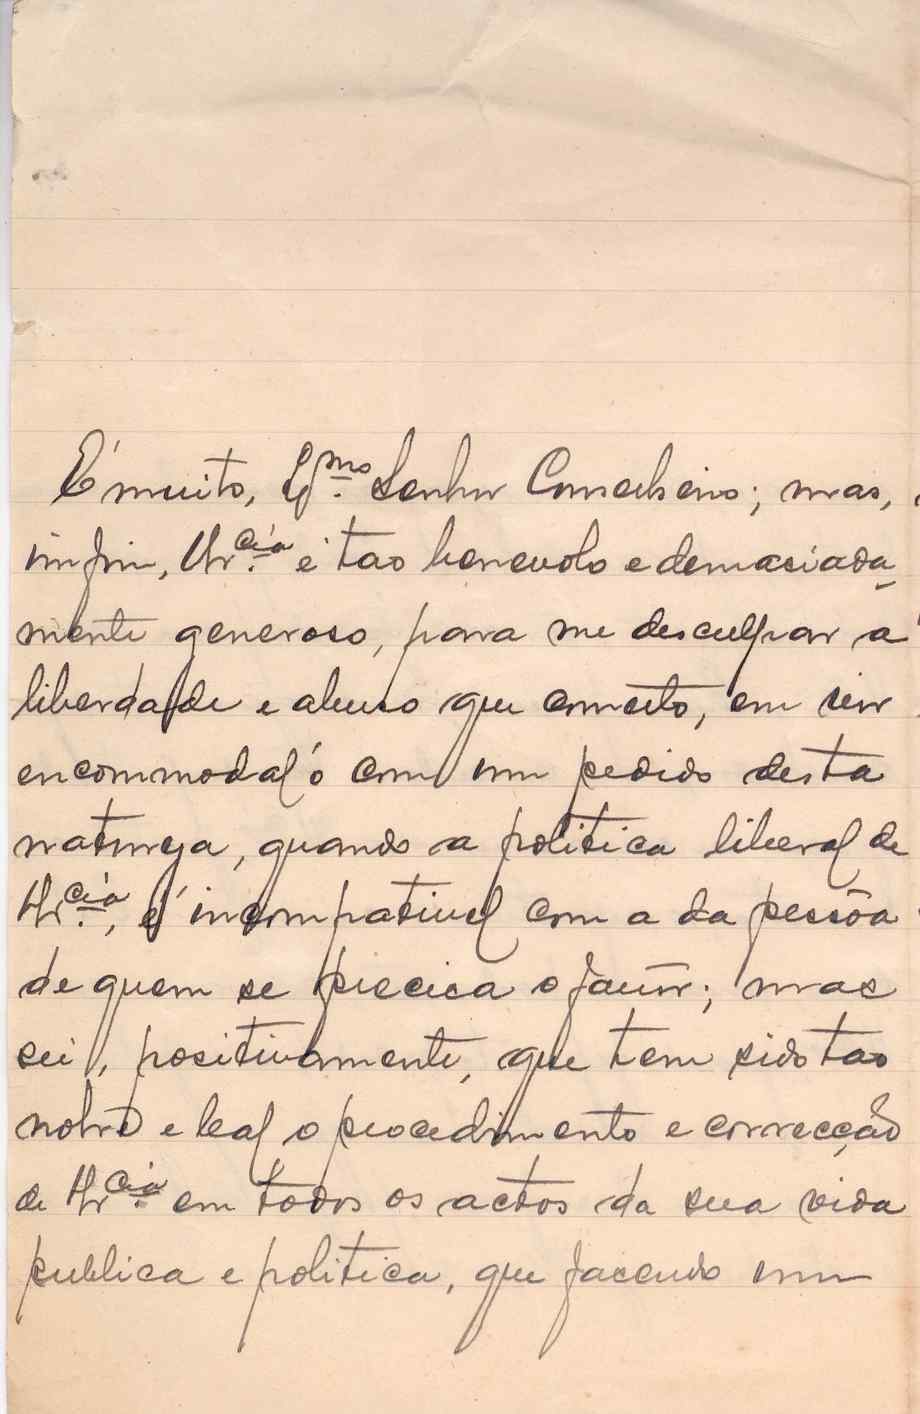 É muito, Ex.mo Senhor Conselheiro; mas,
imfim, Vr.cia é tao benevolo e demasiada-
mente generoso, para me desculpar a
liberdade e abuso que cometo, em vir
encommodal'o com um pedido desta
naturesa, quando a politica liberal de
Vr.cia, é incompativel com a da pessôa
de quem se precisa o favôr; mas
sei, positivamente, que tem sido tao
nobre e leal o procedimento e correcção
de Vr.cia em todos os actos da sua vida
publica e politica, que fasendo um